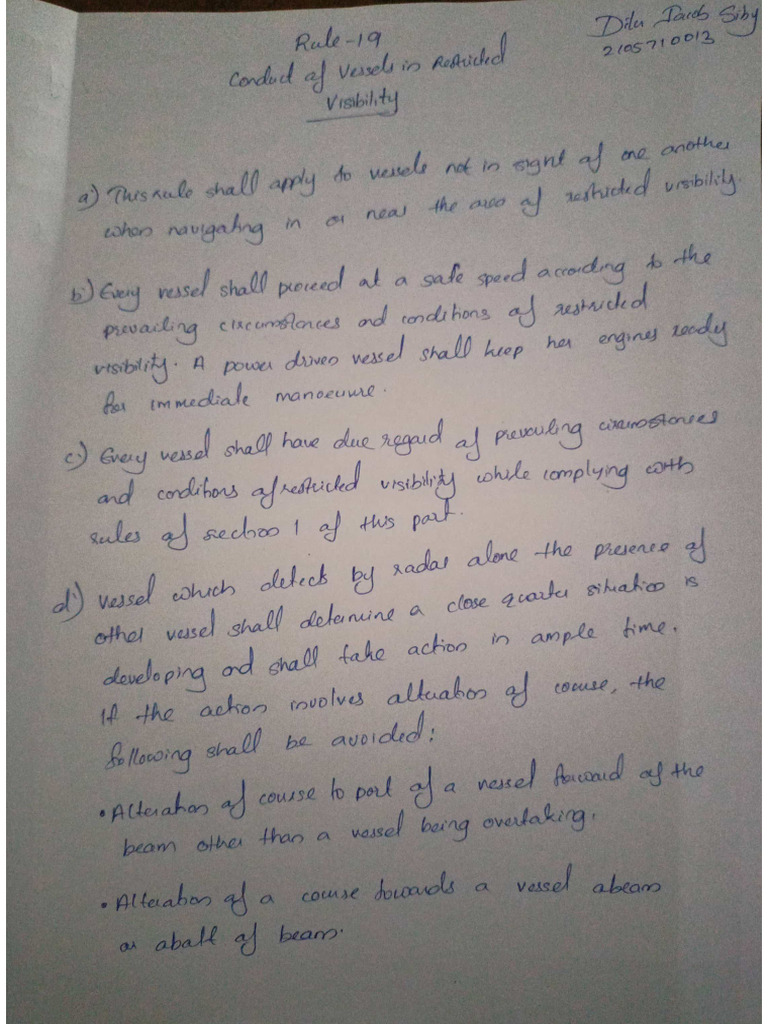 Rule-19
Dilu Jacob Siby
2105710013
Conduct of Vessels in Restricted
Visibility
a) This rule shall apply to vessels not in signt of one another
when navigating in or near the area of restricted visibility.
b) Every vessel shall proceed at a safe speed according to the
prevailing circumstances and conditions of restricted
visibility. A power driven vessel shall keep her engines ready
for immediate manoeuvre.
c) Every vessel shall have due regard of prevailing circumstances
and conditions of restricted visibility while complying with
rules of section 1 of this part.
d) Vessel which detects by radar alone the presence of
other vessel shall determine a close quarter situation is
developing and shall take action in ample time.
If the action involves alteration of course, the
following shall be avoided:
• Alteration of course to port of a vessel forward of the
beam other than a vessel being overtaking.
• Alteration of a course towards a vessel abeam
or abaft of beam.